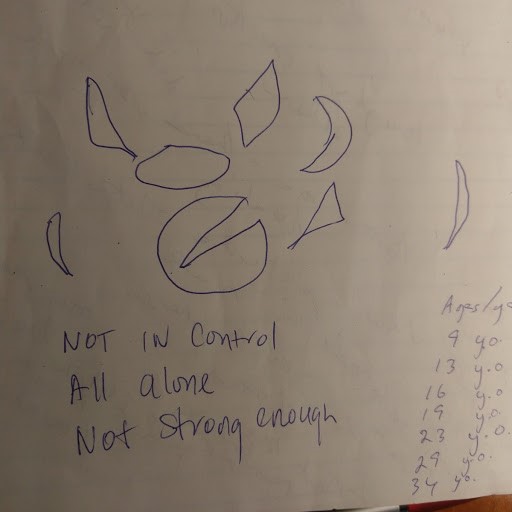 NOT IN Control
All alone
Not Strong enough
9 yo.
13 y.o
16 y.o
19 yo
23 y.o.
29 yo.
34 yo.